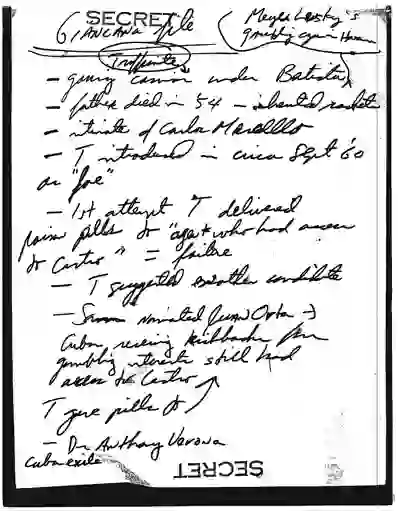 SECRET
GIANCANA file
Meyer Lansky's
gambling czar in Havana
Trafficante
- gaming casinos under Batista
- father died in '54 - inherited rackets
- intimate of Carlos Marcello
- T introduced in circa Sept '60
as "Joe"
- 1st attempt T delivered
poison pills to "agent who had access
to Castro" = failure
- T suggested another candidate
- nominated Juan Orta →
Cuban receiving kickbacks from
gambling interests still had
access to Castro
T gave pills to
- Dr Anthony Varona
Cuban exile
SECRET